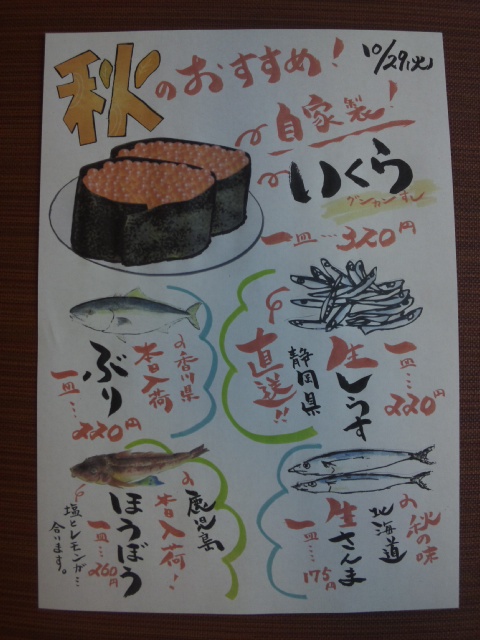 秋のおすすめ!
10/29(火)
自家製!
いくら
グンカンすし
一皿…320円
香川県
本日入荷
ぶり
一皿…220円
静岡県
直送!!
生しらす
一皿…220円
鹿児島
本日入荷!
ほうぼう
一皿…260円
塩とレモンが…
合います。
秋の味
北海道
生さんま
一皿…175円